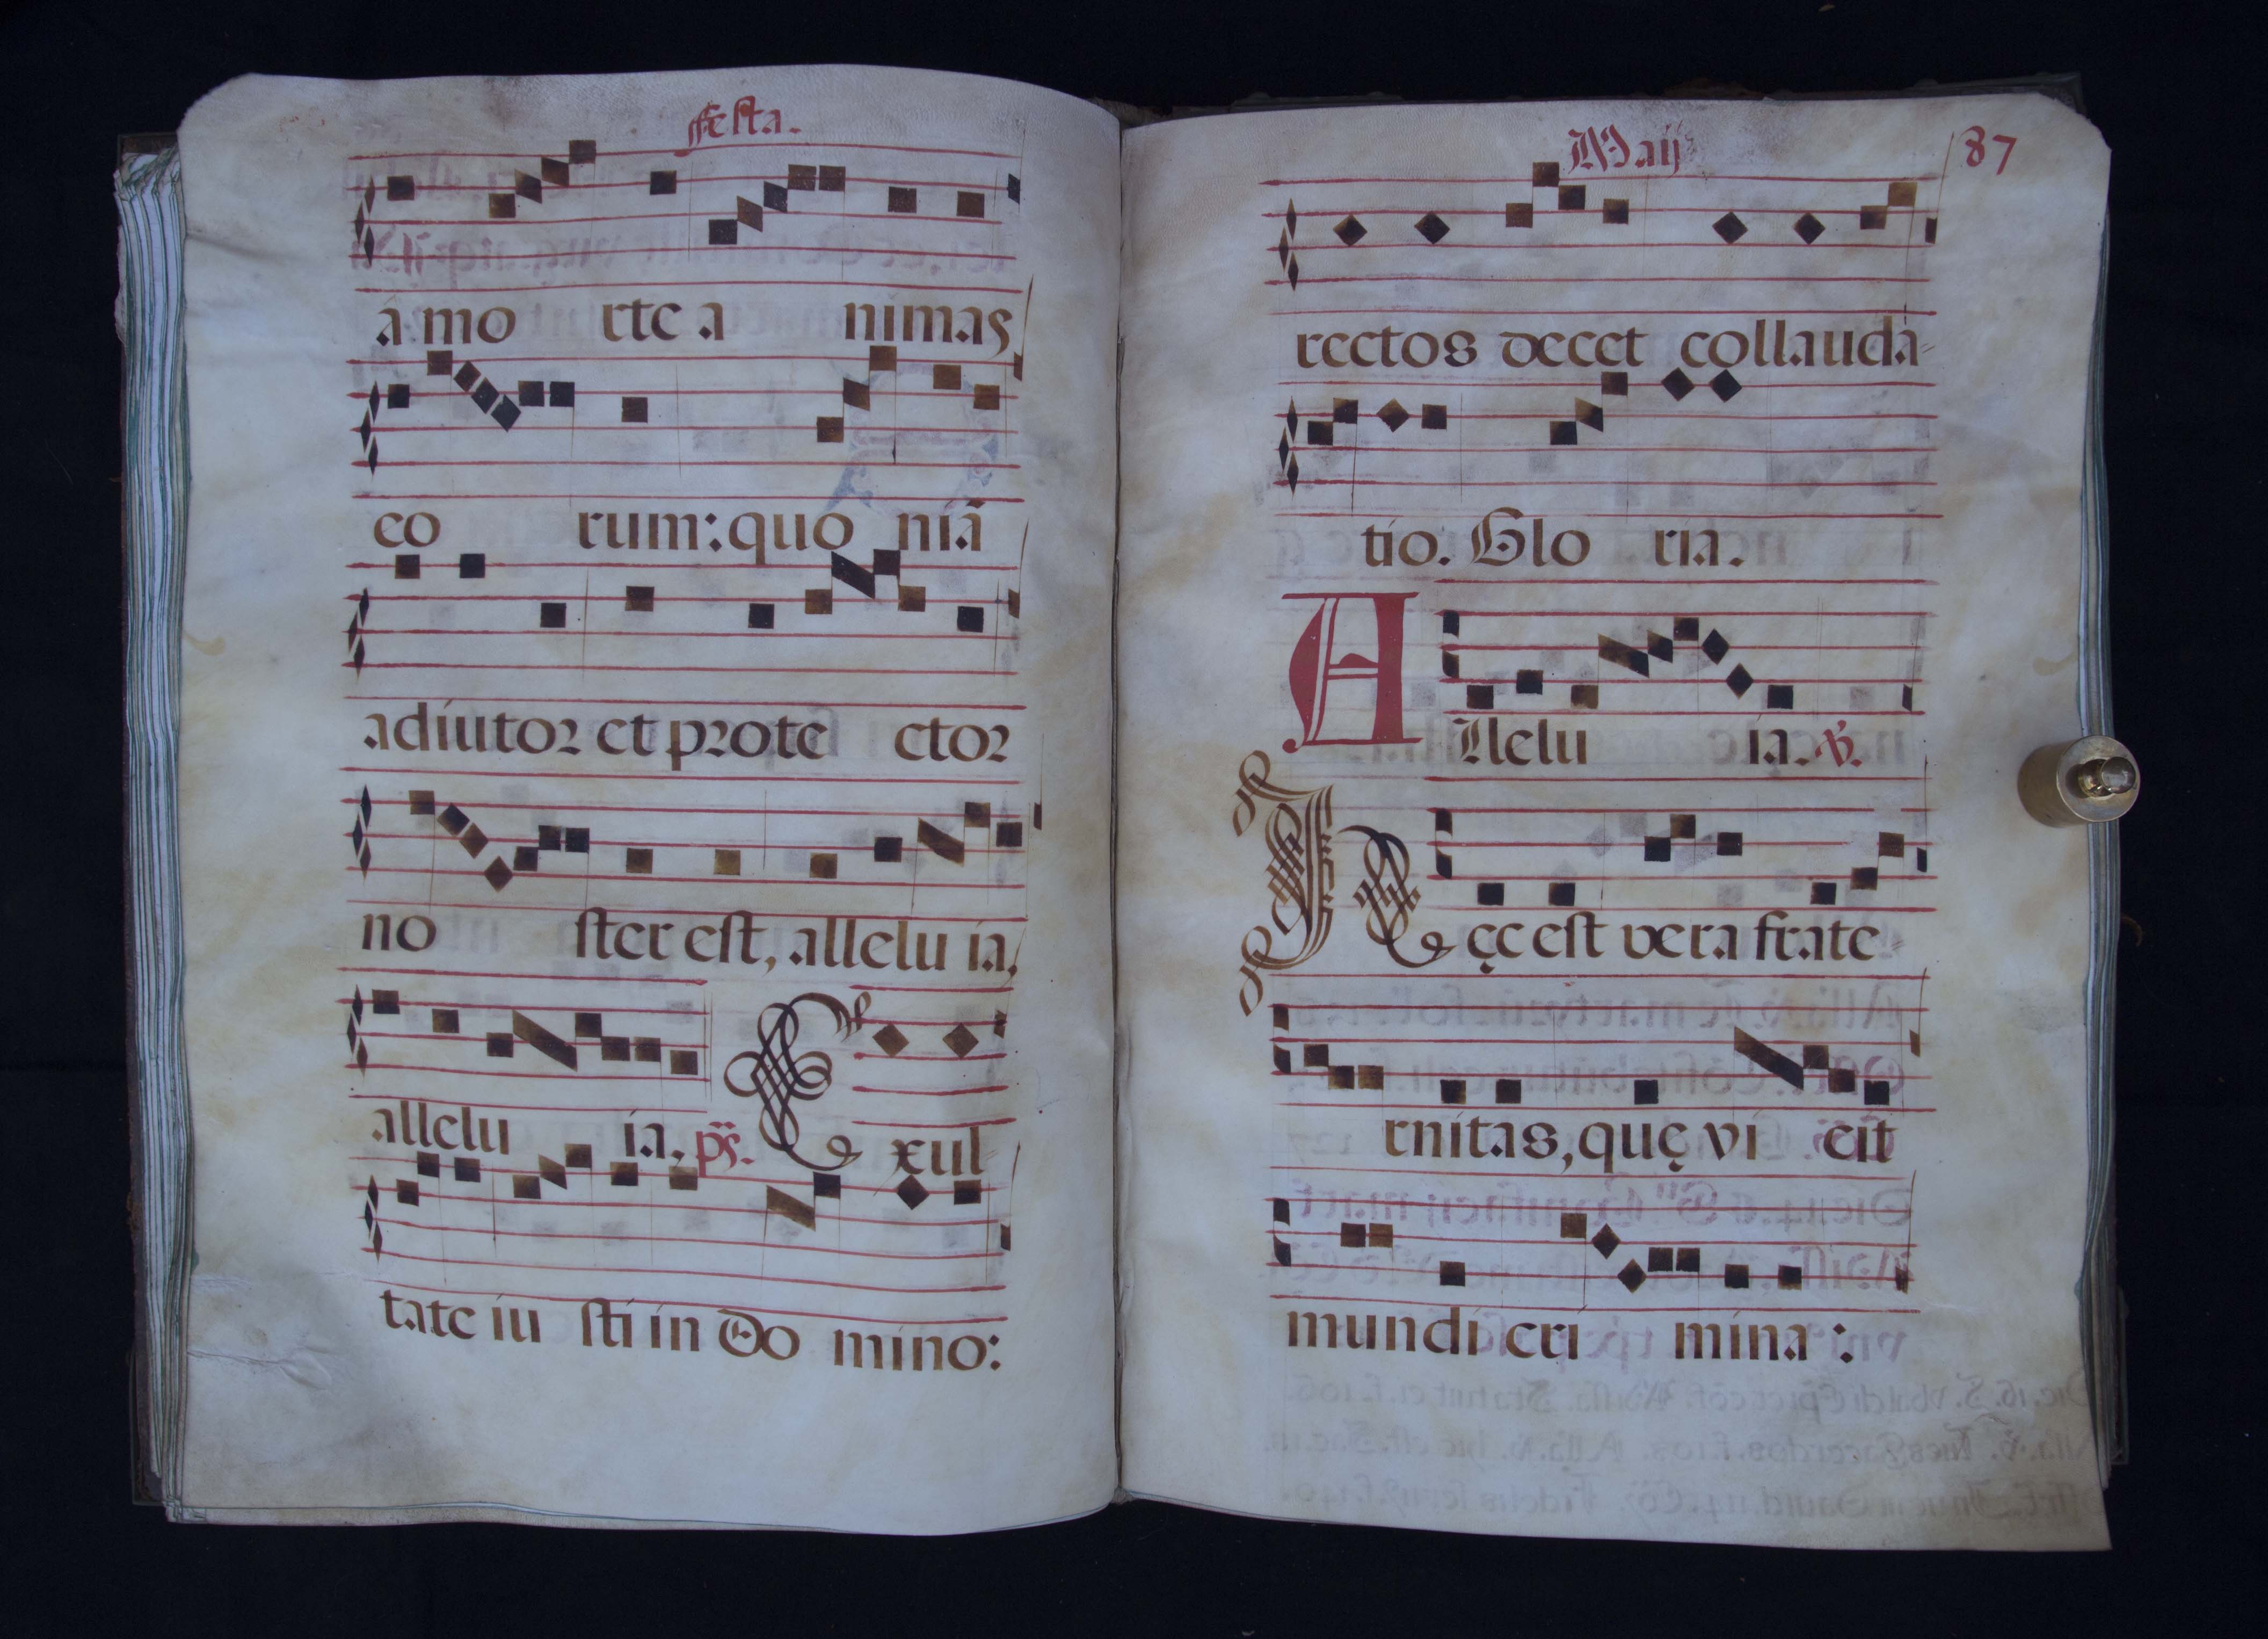 Festa.
á mo rte a nimas
eo rum: quo niã
adiutor et prote ctor
no ster est, allelu ia,
allelu ia, ps. Exul
tate iu sti in Do mino:
Maij 87
rectos decet collauda
tio. Glo ria.
Allelu ia. ℣.
Hęc est vera frate
rnitas, quę vi cit
mundi cri mina: